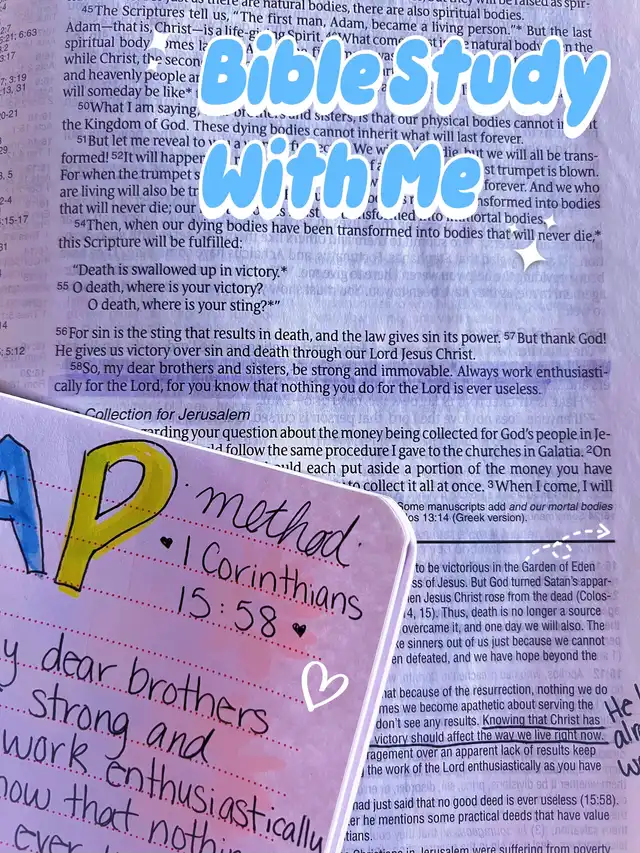 Bible Study
With Me
are natural bodies, there are also spiritual bodies.
45The Scriptures tell us, “The first man, Adam, became a living person.”* But the last
Adam—that is, Christ—is a life-giving Spirit. 46What natural body, the
spiritual body
while Christ, the
and heavenly people
will someday be like*
50What I am saying, and sisters, is that our physical bodies cannot
the Kingdom of God. These dying bodies cannot inherit what will last forever.
51But let me reveal to but we will all be trans-
formed! 52It will happen trumpet is blown.
For when the trumpet forever. And we who
are living will also be transformed into bodies
that will never die; our immortal bodies.
54Then, when our dying bodies have been transformed into bodies that will never die,*
this Scripture will be fulfilled:
“Death is swallowed up in victory.*
55 O death, where is your victory?
O death, where is your sting?*”
56For sin is the sting that results in death, and the law gives sin its power. 57But thank God!
He gives us victory over sin and death through our Lord Jesus Christ.
58So, my dear brothers and sisters, be strong and immovable. Always work enthusiasti-
cally for the Lord, for you know that nothing you do for the Lord is ever useless.
Collection for Jerusalem
your question about the money being collected for God’s people in Je-
follow the same procedure I gave to the churches in Galatia. 2On
each put aside a portion of the money you have
to collect it all at once. 3When I come, I will
Some manuscripts add and our mortal bodies
13:14 (Greek version).
to be victorious in the Garden of Eden
of Jesus. But God turned Satan’s appar-
Jesus Christ rose from the dead (Colos-
14, 15). Thus, death is no longer a source
overcame it, and one day we will also. The
sinners out of us just because we cannot
defeated, and we have hope beyond the
that because of the resurrection, nothing we do
we become apathetic about serving the
don’t see any results. Knowing that Christ has
victory should affect the way we live right now.
over an apparent lack of results keep
the work of the Lord enthusiastically as you have
had just said that no good deed is ever useless (15:58).
he mentions some practical deeds that have value
Christians in Jerusalem were suffering from poverty
He
AP method
1 Corinthians
15:58
dear brothers
strong and
work enthusiastically
that
ever